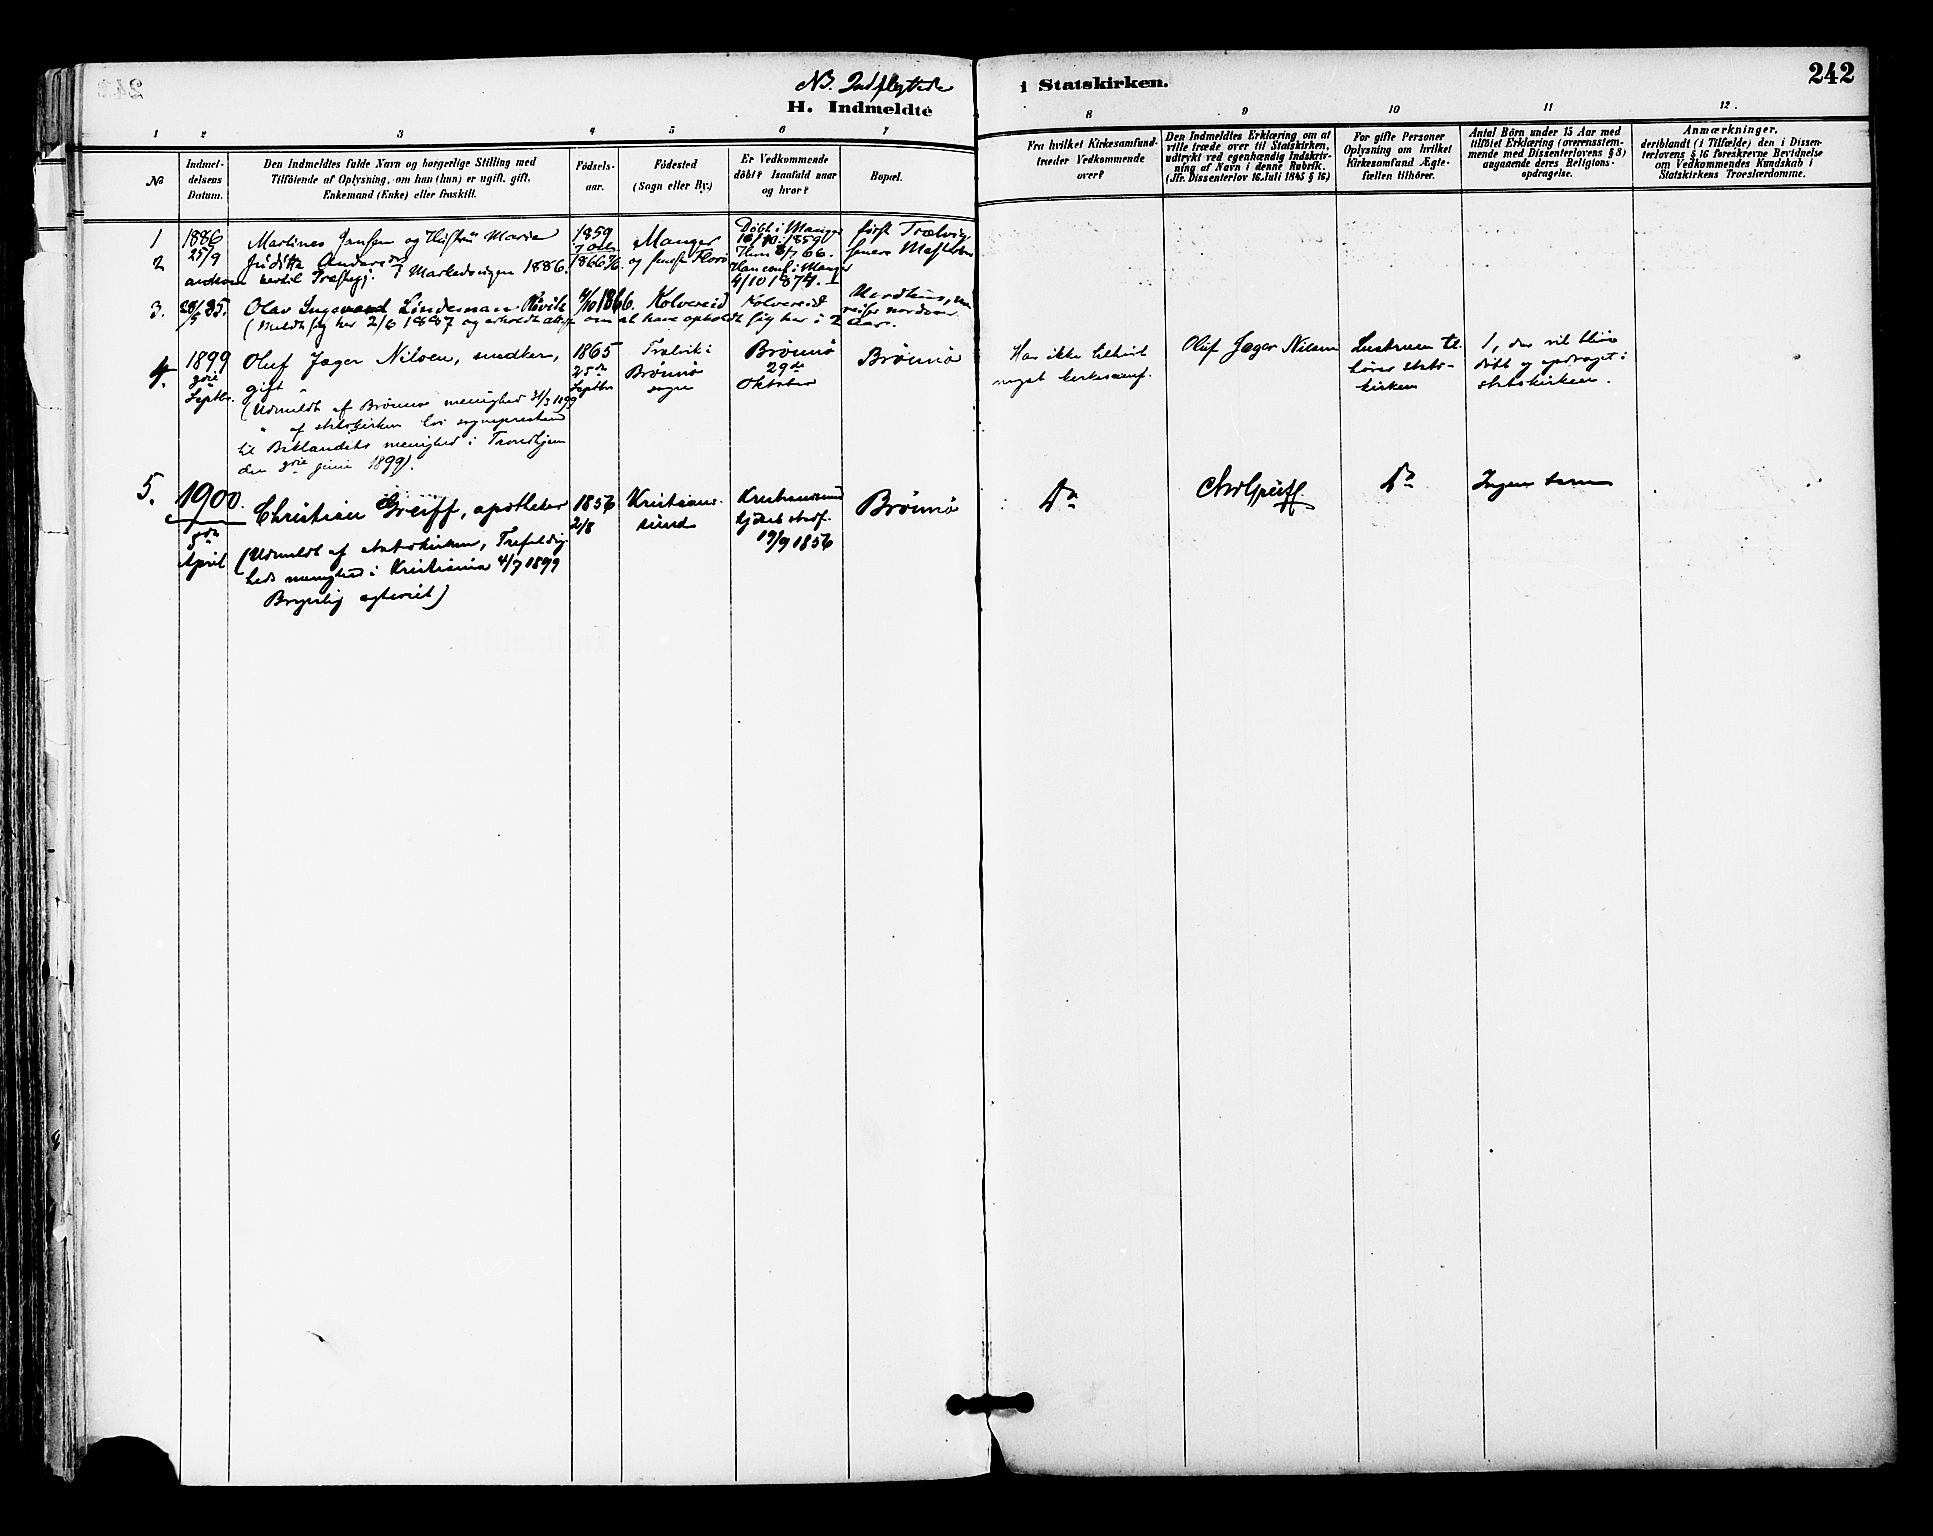 NB. Indflyttede
H. Indmeldte
i Statskirken.
242
1 2 3 4 5 6 7 8 9 10 11 12.
No
Indmel-
delsens
Datum.
Den Indmeldtes fulde Navn og borgerlige Stilling med
Tilföiende af Oplysning, om han (hun) er ugift, gift,
Enkemand (Enke) eller fraskilt.
Födsels-
aar.
Födested
(Sogn eller By.)
Er Vedkommende
döbt? Isaafald naar
og hvor?
Bopæl.
Fra hvilket Kirkesamfund
træder Vedkommende
over?
Den Indmeldtes Erklæring om at
ville træde over til Statskirken,
udtrykt ved egenhændig Indskriv-
ning af Navn i denne Rubrik.
(Jfr. Dissenterlov 16. Juli 1845 § 16)
For gifte Personer
Oplysning om hvilket
Kirkesamfund Ægte-
fællen tilhörer.
Antal Börn under 15 Aar med
tilföiet Erklæring (overensstem-
mende med Dissenterlovens § 8)
angaaende deres Religions-
opdragelse.
Anmærkninger,
deriblandt (i Tilfælde) den i Dissen-
terlovens § 16 foreskrevne Bevidnelse
om Vedkommendes Kundskab i
Statskirkens Troeslærdomme.
1
2
1886
25/9
Martines Jansen og Hustru Maria
Juditte Andersdr
i Markedsvigen 1886.
1859
7 Octb.
1866
Manger
og
Döbt i Manger
16/10. 1859
Hun 8/7 66.
Han conf. i Manger
4/10 1874.
först Trælvig
senere
3.
Olav Lindeman
(Meldte sig her 2/6 1887 og om at have opholdt sig her i 2 Aar.
4/10 1866.
Kolvereid
Kolvereid
4.
1899
3die
Septbr.
Oluf Jæger Nilsen, snedker,
gift
(Udmeldt af Brönnö menighed 31/3 1899
" af statskirken hos sognepresten
til Baklandets menighed i Trondhjem
den 3die juni 1899).
1865
25de
Septbr
Trælvik i
Brönnö
sogn
Brönnö
29de
Oktober
Brönnö
Har ikke tilhört
noget kirkesamf.
Oluf Jæger Nilsen
Hustruen til-
hörer stats-
kirken
1, der vil blive
döbt og opdraget i
statskirken.
5.
1900.
5te
April
Christian Greiff, apotheker
(Udmeldt af statskirken, Trefoldig-
heds menighed i Kristiania 4/7 1899
Borgerlig egteviet)
1856
2/8
Kristians-
sund
Kristianssund
hjemmedöbt stadf.
19/9 1856
Brönnö
Do
Chr Greiff.
Do
Ingen börn